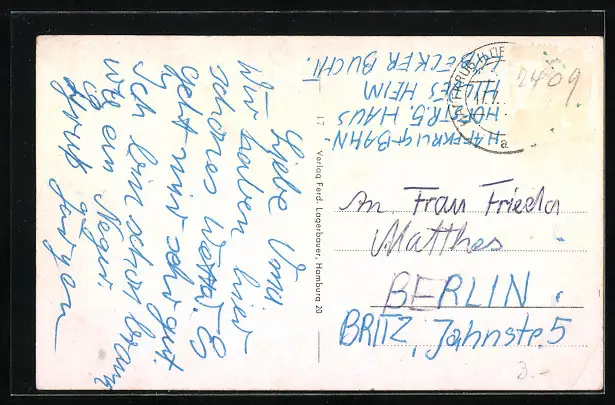 Liebe Omi.
Wir haben hier
schönes Wetter. Es
geht mir sehr gut.
Ich bin schon braun
wie ein Neger.
Gruß
17 Verlag Ferd. Lagerbauer, Hamburg 20
HAFFKRUG-BAHN-
HOFSTR. 5. HAUS
HILLES HEIM
BECKER BUCHT.
HAFFKRUG
a
2409
An Frau Frieda
Matthes
BERLIN.
BRITZ, Jahnstr. 5
3.-